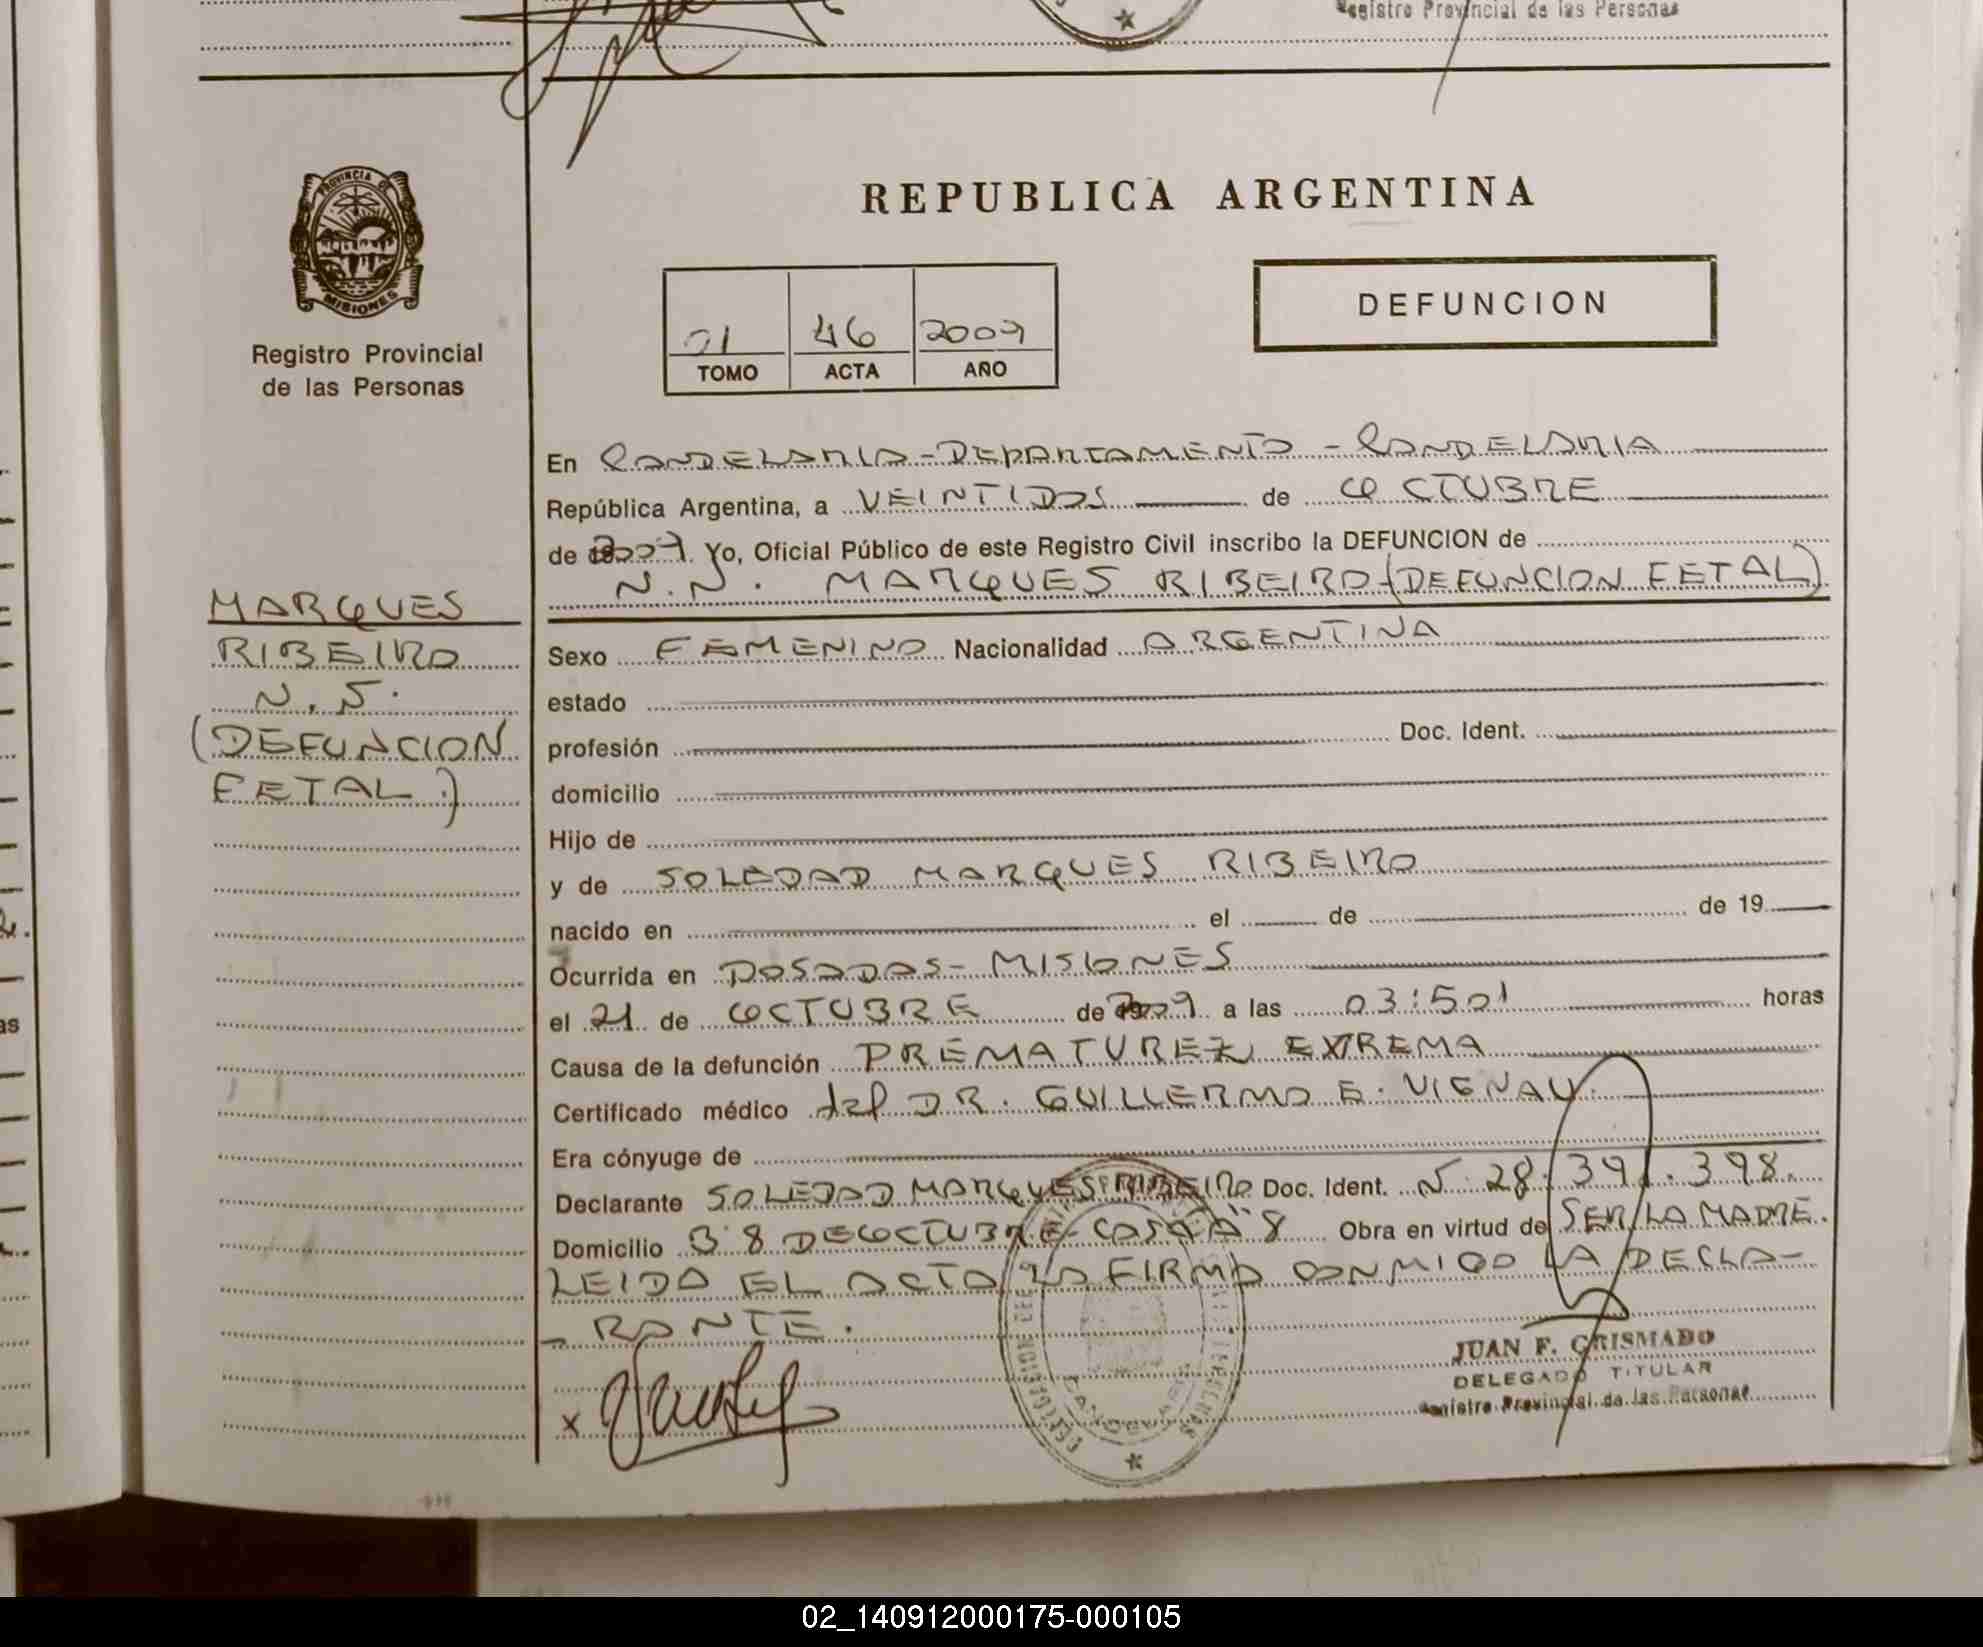 Registro Provincial de las Personas
PROVINCIA DE
MISIONES
Registro Provincial
de las Personas
REPUBLICA ARGENTINA
01 46 2009
TOMO ACTA AÑO
DEFUNCION
En CANDELARIA - DEPARTAMENTO - CANDELARIA
República Argentina, a VEINTIDOS de OCTUBRE
de 2009. Yo, Oficial Público de este Registro Civil inscribo la DEFUNCION de
N.N. MARQUES RIBEIRO (DEFUNCION FETAL)
MARQUES
RIBEIRO
N.N.
(DEFUNCION
FETAL.)
Sexo FEMENINO Nacionalidad ARGENTINA
estado
profesión Doc. Ident.
domicilio
Hijo de
y de SOLEDAD MARQUES RIBEIRO
nacido en el de de 19
Ocurrida en POSADAS - MISIONES
el 21 de OCTUBRE de 2009 a las 03:50' horas
Causa de la defunción PREMATUREZ EXTREMA
Certificado médico del DR. GUILLERMO E. VIGNAU.
Era cónyuge de
Declarante SOLEDAD MARQUES RIBEIRO Doc. Ident. N. 28.391.398.
Domicilio Bº 8 DE OCTUBRE - CASA 8 Obra en virtud de SER LA MADRE.
LEIDA EL ACTA LA FIRMA CONMIGO LA DECLA-
- RANTE.
JUAN F. GRISMADO
DELEGADO TITULAR
Registro Provincial de las Personas
x
CANDELARIA
02_140912000175-000105